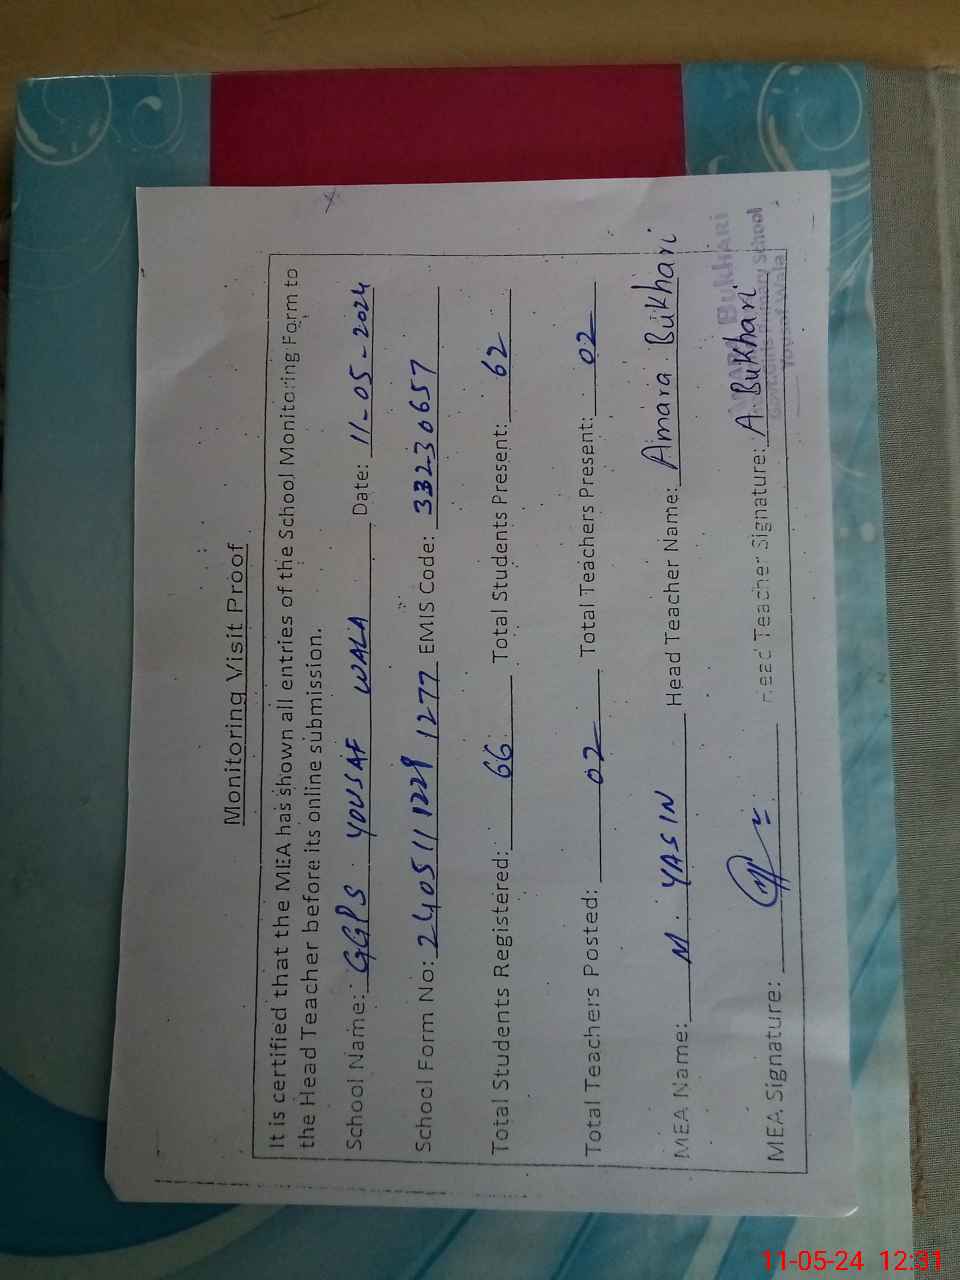 Monitoring Visit Proof
It is certified that the MEA has shown all entries of the School Monitoring Form to
the Head Teacher before its online submission.
School Name: GGPS YOUSAF WALA Date: 11-05-2024
School Form No: 240511 1228 1277 EMIS Code: 33230657
Total Students Registered: 66 Total Students Present: 62
Total Teachers Posted: 02 Total Teachers Present: 02
MEA Name: M. YASIN Head Teacher Name: Amara Bukhari
MEA Signature: Head Teacher Signature: A Bukhari
AMARA BUKHARI
Primary School
Yousaf Wala
11-05-24 12:31